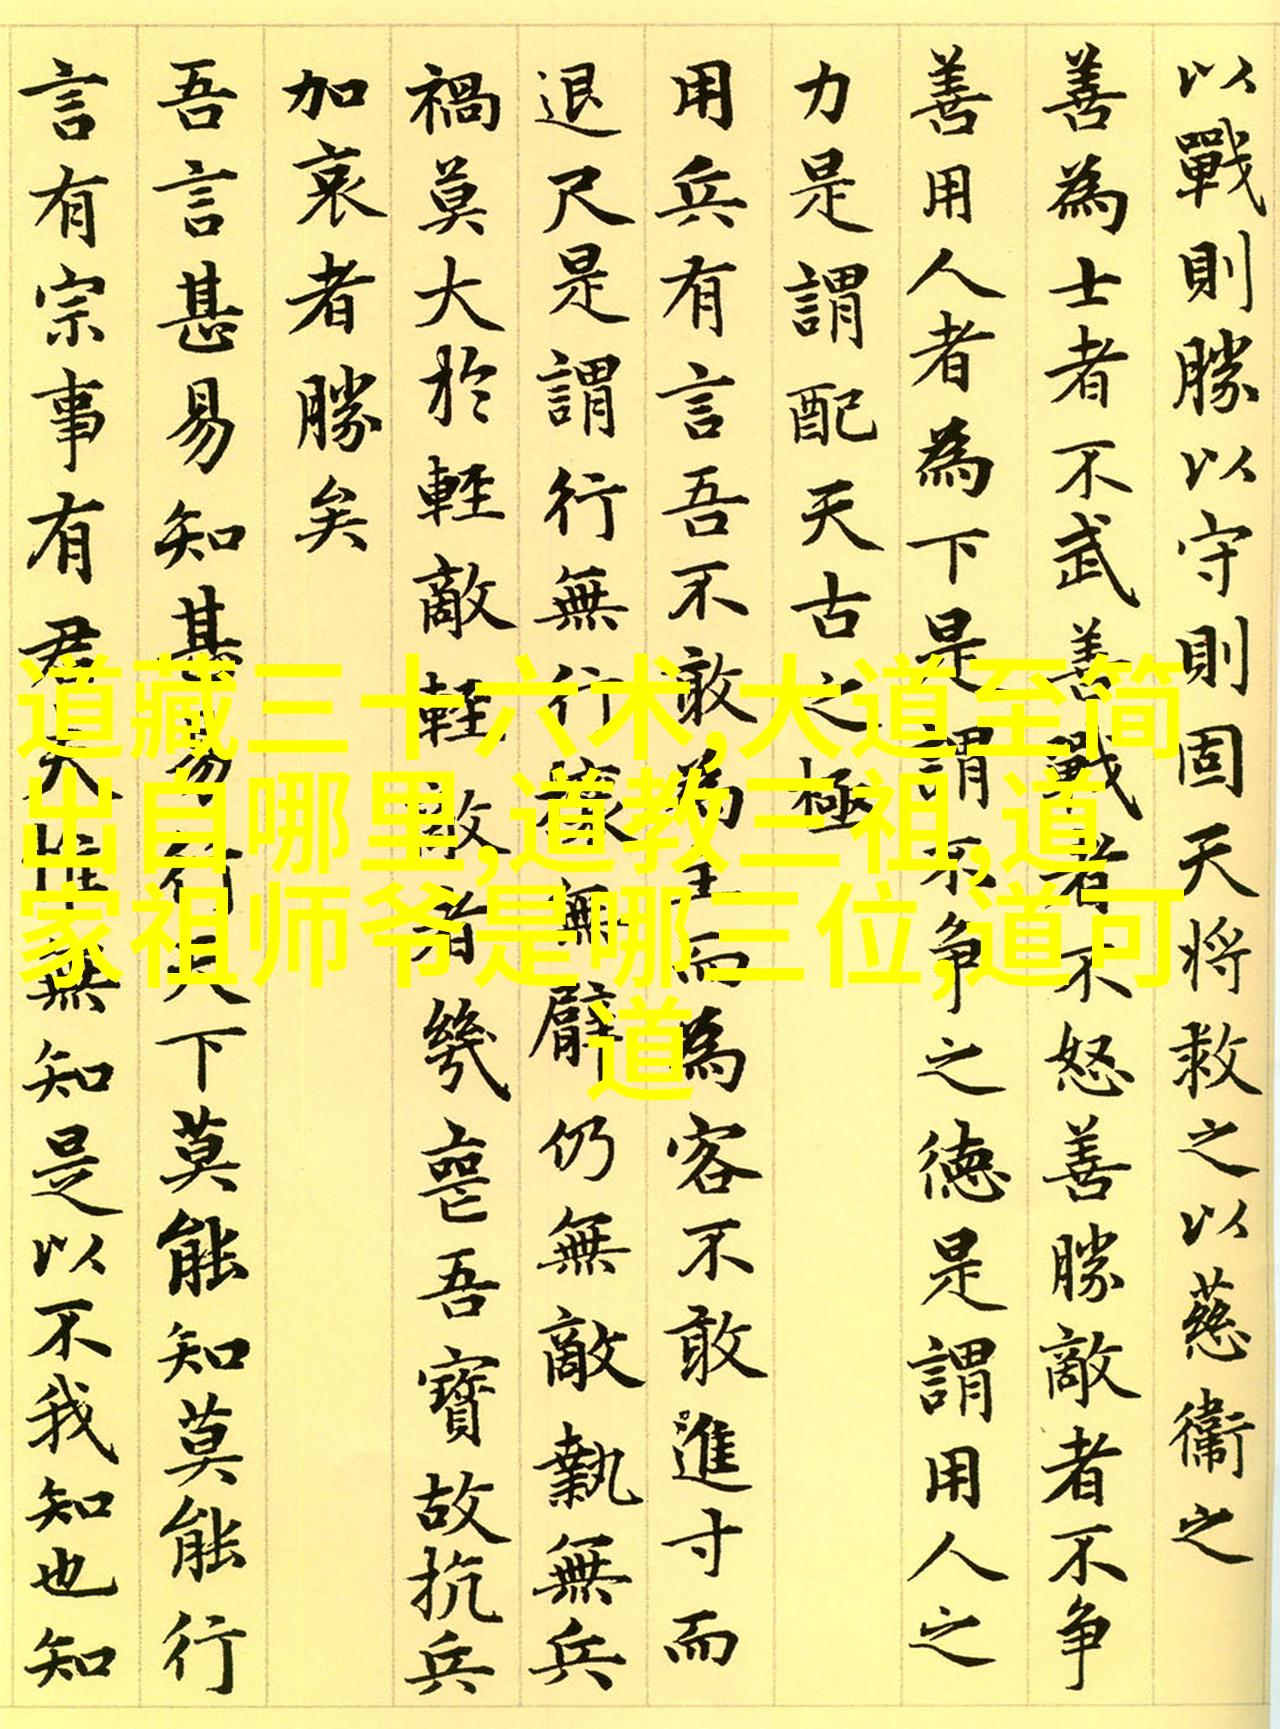 以戰則勝以守則固天將救之以慈衞之
善為士者不武善戰者不怒善勝敵者不争
善用人者為下是謂不争之德是謂用人之
力是謂配天古之極
用兵有言吾不敢為主而為客不敢進寸而
退尺是謂行無行攘無臂仍無敵執無兵
禍莫大於輕敵輕敵者幾喪吾寶故抗兵
加哀者勝矣
吾言甚易知甚易行天下莫能知莫能行
言有宗事有君夫惟無知是以不我知也知
道藏三十六术,大道至简
出自哪里,道教三祖,道
家祖师爷是哪三位,道可
道